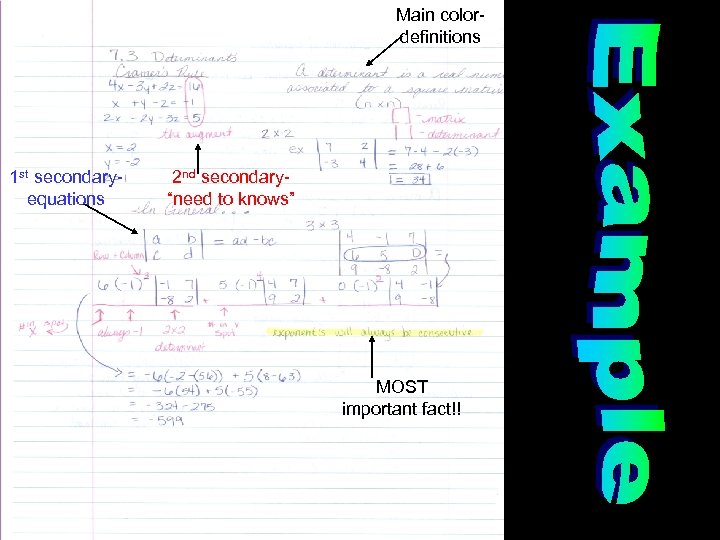 Main color-
definitions
7.3 Determinants
Cramer's Rule
4x-3y+2z=16
x +y-z=-1
2x -2y-3z=5
x=2
y=-2
A determinant is a real num
associated to a square matrix
(n xn)
-matrix
-determinant
the augment
2x2
ex
7 2
-3 4
= 7·4-2(-3)
= 28+6
= 34
1st secondary-
equations
2nd secondary-
“need to knows”
In General...
a b
c d
= ad-bc
3x3
4 -1 7
6 5 0
9 -8 2
=
Row + Column
6(-1)³ -1 7 + 5(-1)⁴ 4 7 + 0(-1) 4 -1
-8 2 9 2 9 -8
always -1
2x2
determinant
exponents will always be consecutive
= -6(-2-(56)) + 5(8-63)
= -6(54)+5(-55)
= -324-275
= -599
MOST
important fact!!
Example